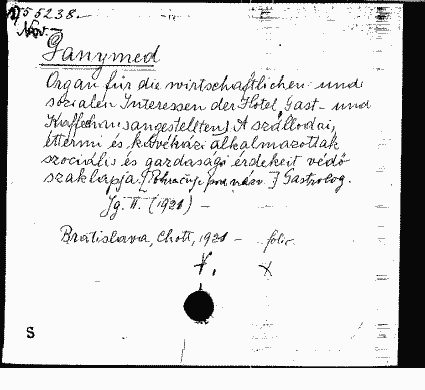 55238
Nov.
Ganymed
Organ für die wirtschaftlichen und
sozialen Interessen der Hotel, Gast- und
Kaffeehausangestellten. A szállodai,
éttermi és kávéházi alkalmazottak
szociális és gazdasági érdekeit védő
szaklapja. [Pokračuje pod názv.] Gastrolog.
Jg. II. (1921) –
Bratislava, Chott, 1921 – folio.
S